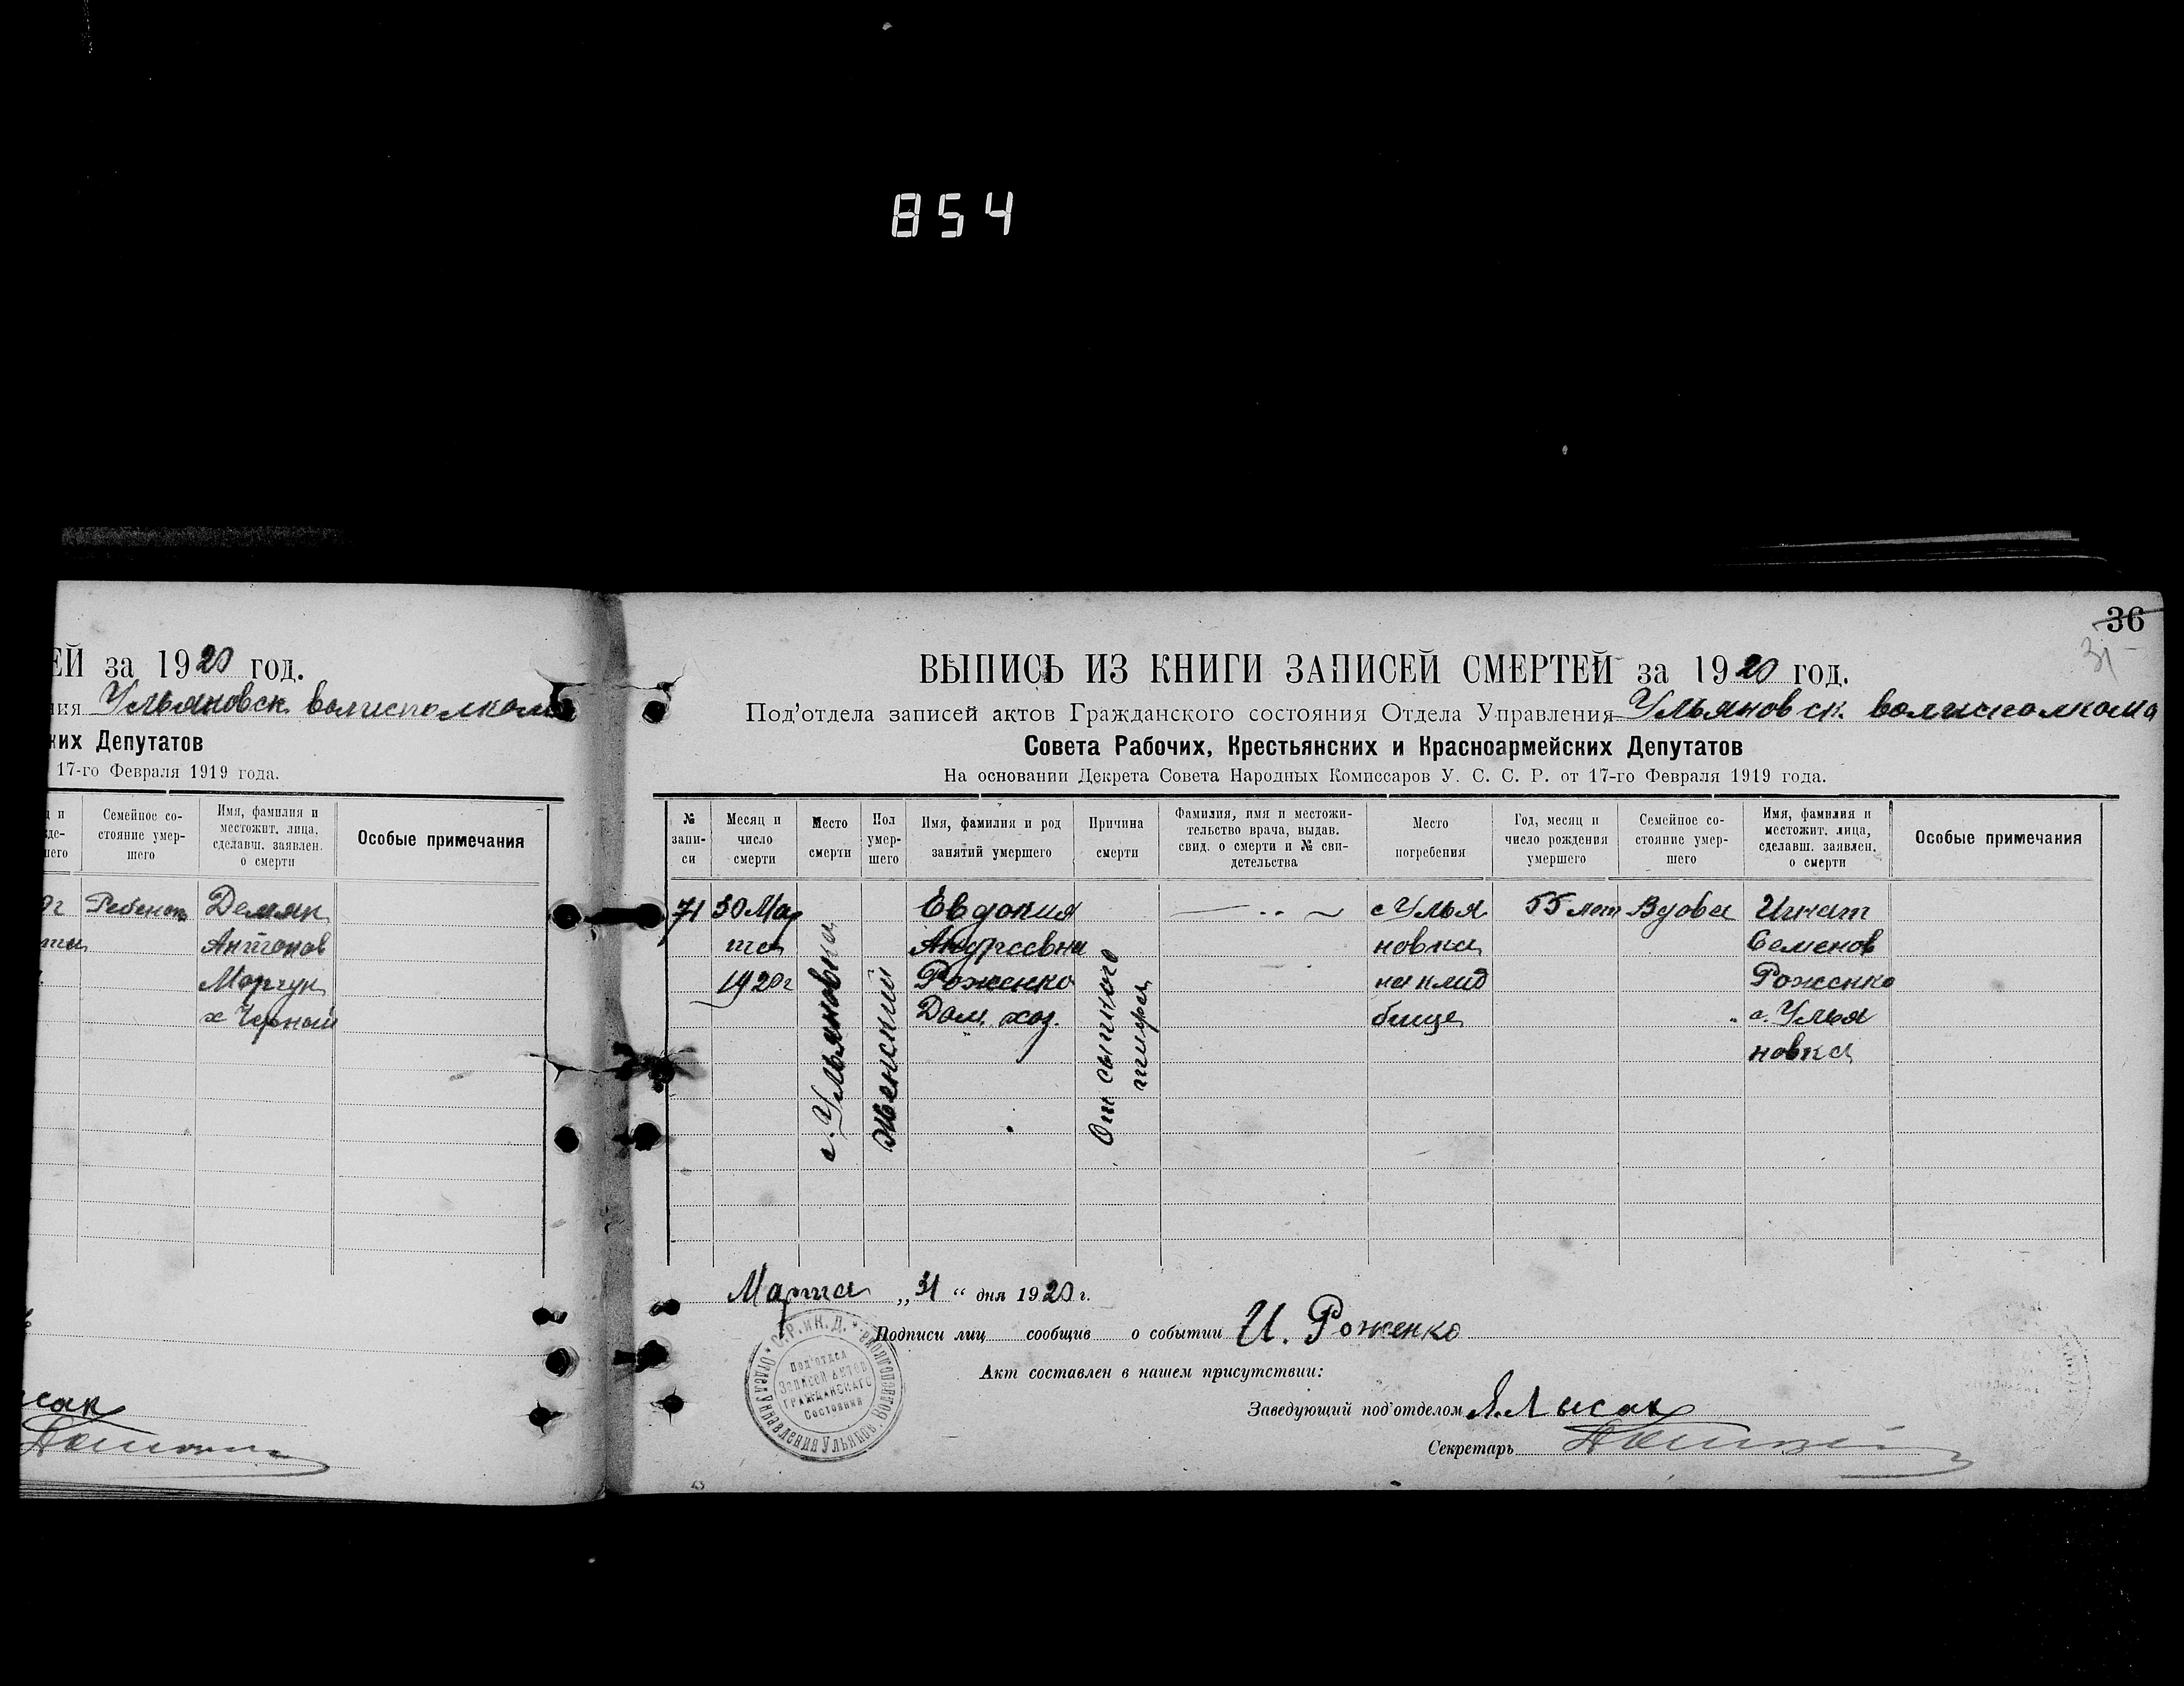 854
ЕЙ за 1920 год.
ния Ульяновск. волисполкома
ких Депутатов
17-го Февраля 1919 года.
Семейное со-
стояние умер-
шего
Имя, фамилия и
местожит. лица,
сделавш. заявлен.
о смерти
Особые примечания
Ребенок
Демян
Антонов
Марчук
х Черном
36
31
ВЫПИСЬ ИЗ КНИГИ ЗАПИСЕЙ СМЕРТЕЙ за 1920 год.
Под'отдела записей актов Гражданского состояния Отдела Управления Ульяновск. волисполкома
Совета Рабочих, Крестьянских и Красноармейских Депутатов
На основании Декрета Совета Народных Комиссаров У. С. С. Р. от 17-го Февраля 1919 года.
№
запи-
си
Месяц и
число
смерти
Место
смерти
Пол
умер-
шего
Имя, фамилия и род
занятий умершего
Причина
смерти
Фамилия, имя и местожи-
тельство врача, выдав.
свид. о смерти и № сви-
детельства
Место
погребения
Год, месяц и
число рождения
умершего
Семейное со-
стояние умер-
шего
Имя, фамилия и
местожит. лица,
сделавш. заявлен.
о смерти
Особые примечания
71
30 Мар
та
1920 г
с. Ульяновка
женский
Евдокия
Андреевна
Роженко
Дом. хоз.
От сыпного
тифа
с Улья
новка
на клад
бище
55 лет
Вдова
Игнат
Семенов
Роженко
с. Улья
новка
Марта „31“ дня 1920 г.
Подписи лиц сообщив о событии И. Роженко
Акт составлен в нашем присутствии:
Заведующий под'отделом Я. Лысак
Секретарь
С.Р. и К.Д.
Отдел Управления Ульянов. Волисполкома
Под'отдел
Записей актов
Гражданского
Состояния